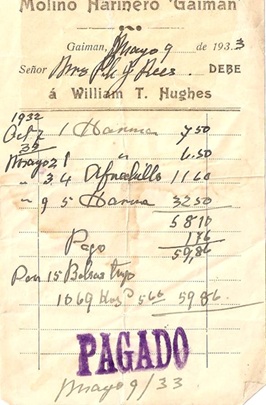 Molino Harinero "Gaiman"
Gaiman, Mayo 9 de 1933
Señor Mrs Rees DEBE
á William T. Hughes
1932
Oct 7 1 Harina 7.50
33
Mayo 2 1 " 6.50
" 3. 4 Afrechillo 11.60
" 9 5 Harina 32.50
58.10
Pago 1.86
59,86
Por 15 Bolsas trigo
1069 Kos 5.60 59.86
PAGADO
Mayo 9/33